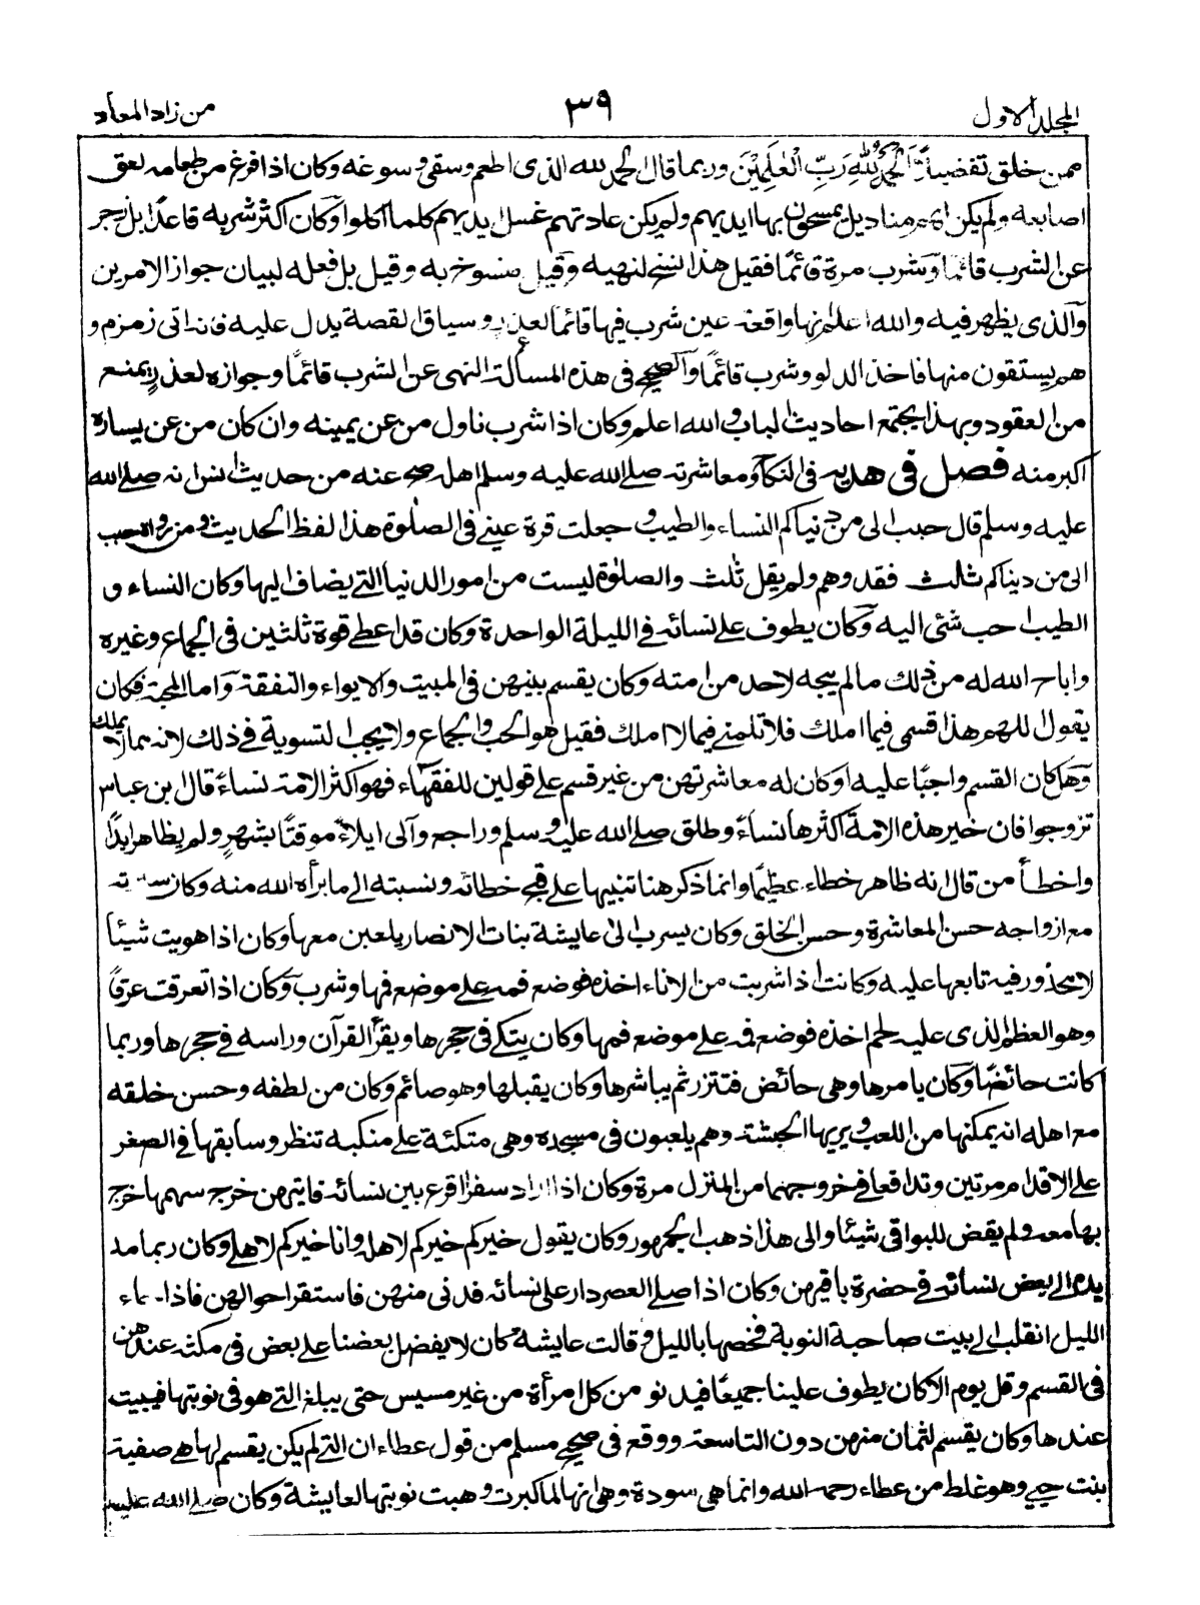 المجلد الاول
٣٩
من زاد المعاد
ممن خلق تفضيلاً اَلْحَمْدُ لِلّٰهِ رَبِّ الْعٰلَمِيْنَ وربما قال الحمد لله الذى اطعم وسقى وسوغه وكان اذا فرغ من طعامه لعق
اصابعه ولم يكن لهم مناديل يمسحون بها ايديهم ولم يكن عادتهم غسل ايديهم كلما اكلوا وكان اكثر شربه قاعدًا بل زجر
عن الشرب قائمًا وشرب مرة قائمًا فقيل هذا نسخ لنهيه وقيل منسوخ به وقيل بل فعله لبيان جواز الامرين
والذى يظهر فيه والله اعلم انها واقعة عين شرب فيها قائما لعذر وسياق القصة يدل عليه فانه اتى زمزم و
هم يستقون منها فاخذ الدلو وشرب قائمًا والصحيح فى هذه المسألة النهى عن الشرب قائمًا وجوازه لعذر يمنع
من العقود وبهذا يجتمع احاديث الباب والله اعلم وكان اذا شرب ناول من عن يمينه وان كان من عن يساره
اكبر منه فصل فى هديه فى النكاح ومعاشرته صلى الله عليه وسلم اهله صح عنه من حديث انس انه صلى الله
عليه وسلم قال حبب الى من دنياكم النساء والطيب وجعلت قرة عينى فى الصلوة هذا لفظ الحديث ومن رواه حبب
الى من ديناكم ثالث فقد وهم ولم يقل ثلث والصلوة ليست من امور الدنيا التى يضاف اليها وكان النساء و
الطيب احب شئ اليه وكان يطوف على نسائه فى الليلة الواحدة وكان قد اعطى قوة ثلثين فى الجماع وغيره
واباح الله له من ذلك ما لم يبحه لاحد من امته وكان يقسم بينهن فى المبيت والايواء والنفقة واما المحبة فكان
يقول اللهم هذا قسمى فيما املك فلا تلمنى فيما لا املك فقيل هو الحب والجماع ولا يجب التسوية فى ذلك لانه مما لا يملك
وهل كان القسم واجبًا عليه او كان له معاشرتهن من غير قسم على قولين للفقهاء فهو اكثر الامة نساءً قال بن عباس
تزوجوا فان خير هذه الامة اكثرها نساءً وطلق صلى الله عليه وسلم وراجع وآلى ايلاءً موقتًا بشهرٍ ولم يظاهر ابدًا
واخطأ من قال انه ظاهر خطاء عظيمًا وانما ذكر هنا تنبيها على قبح خطائه ونسبته الى ما برأه الله منه وكان
مع ازواجه حسن المعاشرة وحسن الخلق وكان يسرب الى عايشة بنات الانصار يلعبن معها وكان اذا هويت شيئًا
لا محذور فيه تابعها عليه وكانت اذا شربت من الاناء اخذه فوضع فمه على موضع فمها وشرب وكان اذا تعرقت عرقًا
وهو العظم الذى عليه لحم اخذه فوضع فمه على موضع فمها وكان يتكئ فى حجرها ويقرأ القرآن وراسه فى حجرها وربما
كانت حائضًا وكان يامرها وهى حائض فتتزر ثم يباشرها وكان يقبلها وهو صائم وكان من لطفه وحسن خلقه
مع اهله انه يمكنها من اللعب ويريها الحبشة وهم يلعبون فى مسجده وهى متكئة على منكبه تنظر وسابقها فى الصغر
على الاقدام مرتين وتدافعا فى خروجهما من المنزل مرة وكان اذا اراد سفرا اقرع بين نسائه فايتهن خرج سهمها خرج
بها معه ولم يقض للبواقى شيئا والى هذا ذهب الجمهور وكان يقول خيركم خيركم لاهله وانا خيركم لاهلى وكان ربما مد
يده الى بعض نسائه فى حضرة باقيهن وكان اذا صلى العصر دار على نسائه فدنى منهن فاستقرا احوالهن فاذا جاء
الليل انقلب الى بيت صاحبة النوبة فخصها بالليل وقالت عايشة كان لا يفضل بعضنا على بعض فى مكثه عندهن
فى القسم وقل يوم الا كان يطوف علينا جميعًا فيدنو من كل امرأة من غير مسيس حتى يبلغ التى هو فى نوبتها فيبيت
عندها وكان يقسم لثمان منهن دون التاسعة ووقع فى صحيح مسلم من قول عطاء ان التى لم يكن يقسم لها هى صفية
بنت حيى وهو غلط من عطاء رحمه الله وانما هى سودة وهى انها لما كبرت وهبت نوبتها لعايشة وكان صلى الله عليه